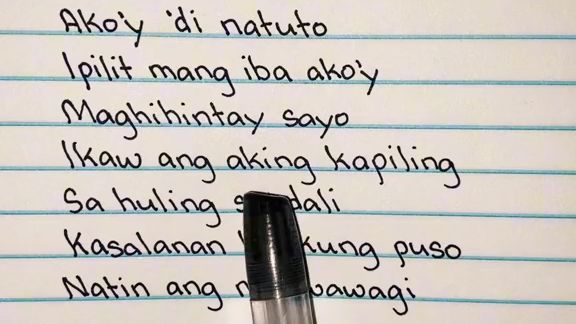 Ako'y 'di natuto
Ipilit mang iba ako'y
Maghihintay sayo
Ikaw ang aking kapiling
Sa huling
Kasalanan kung puso
Natin ang